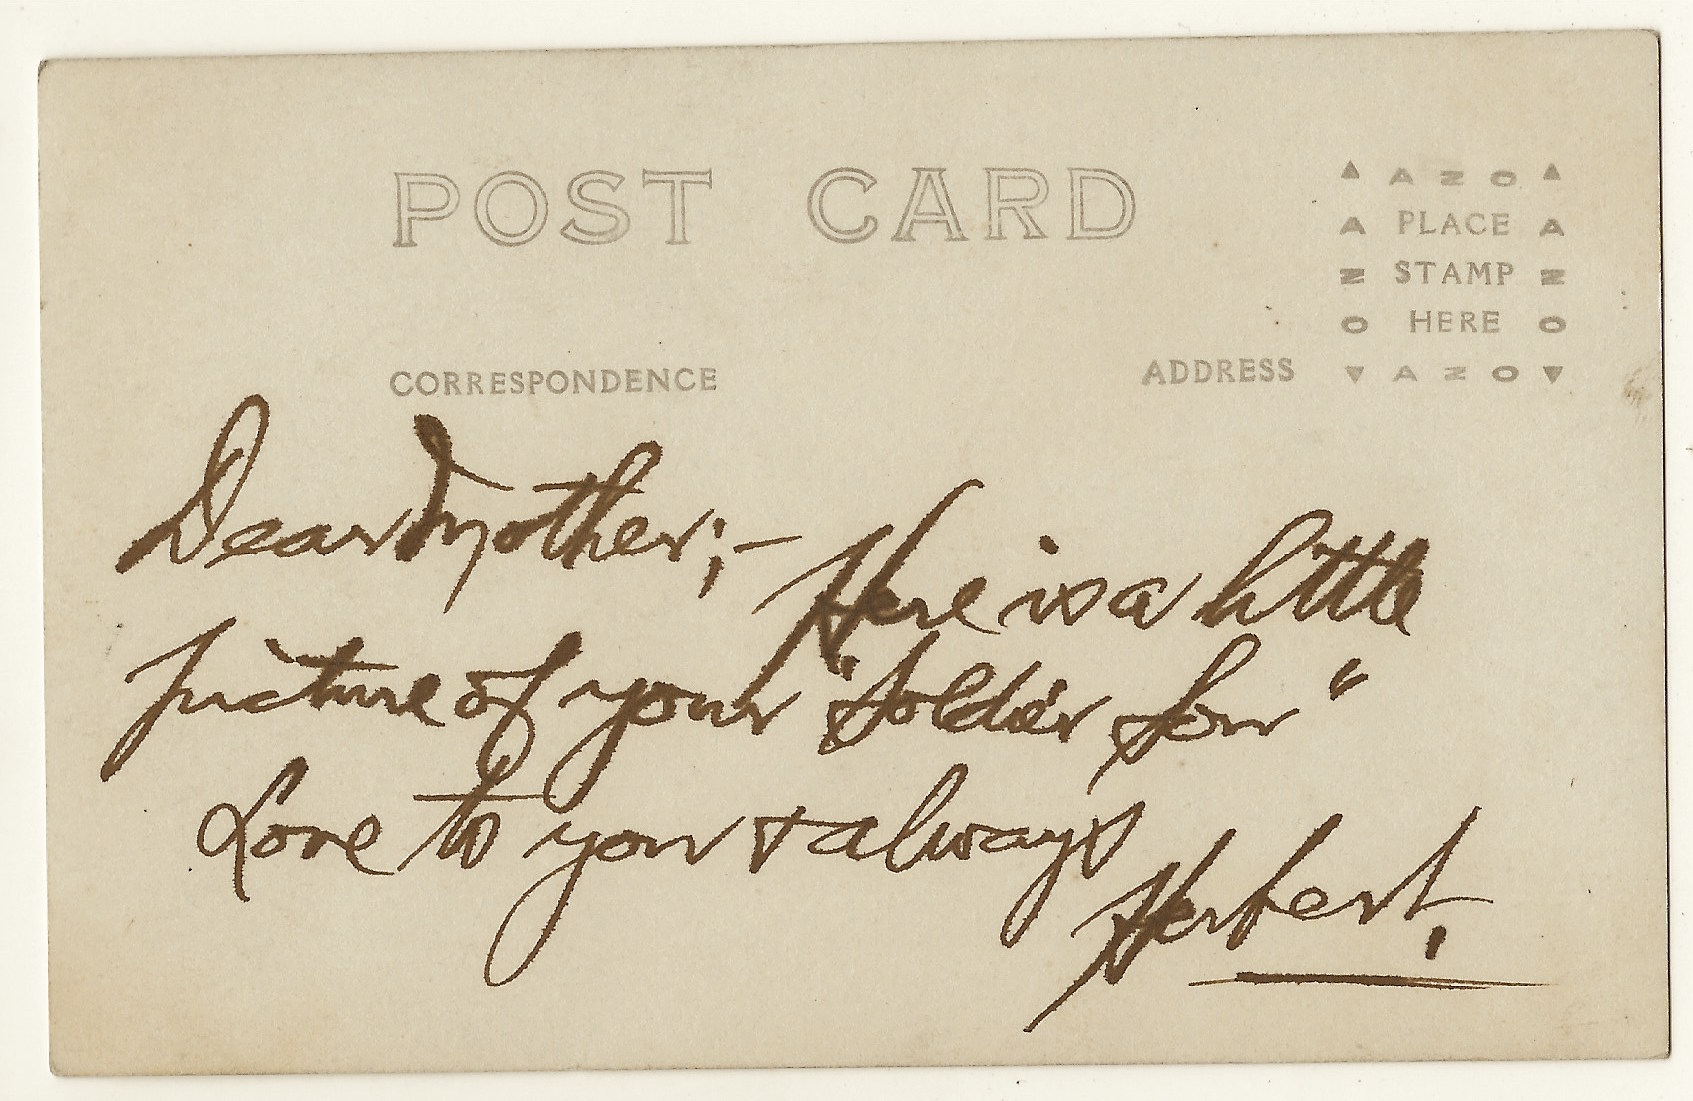 POST CARD
▲ AZO ▲
A PLACE A
Z STAMP Z
O HERE O
▼ AZO ▼
CORRESPONDENCE
ADDRESS
Dear Mother;— Here is a little
picture of your "Soldier Son"
Love to you & always
Herbert.